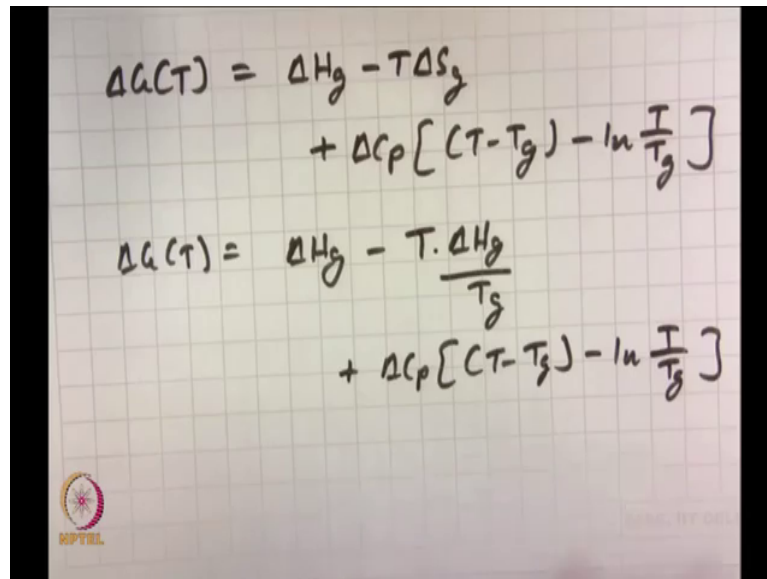 ΔG(T) = ΔHg - TΔSg
+ ΔCp [ (T-Tg) - ln T/Tg ]
ΔG(T) = ΔHg - T. ΔHg/Tg
+ ΔCp [ (T-Tg) - ln T/Tg ]
NPTEL